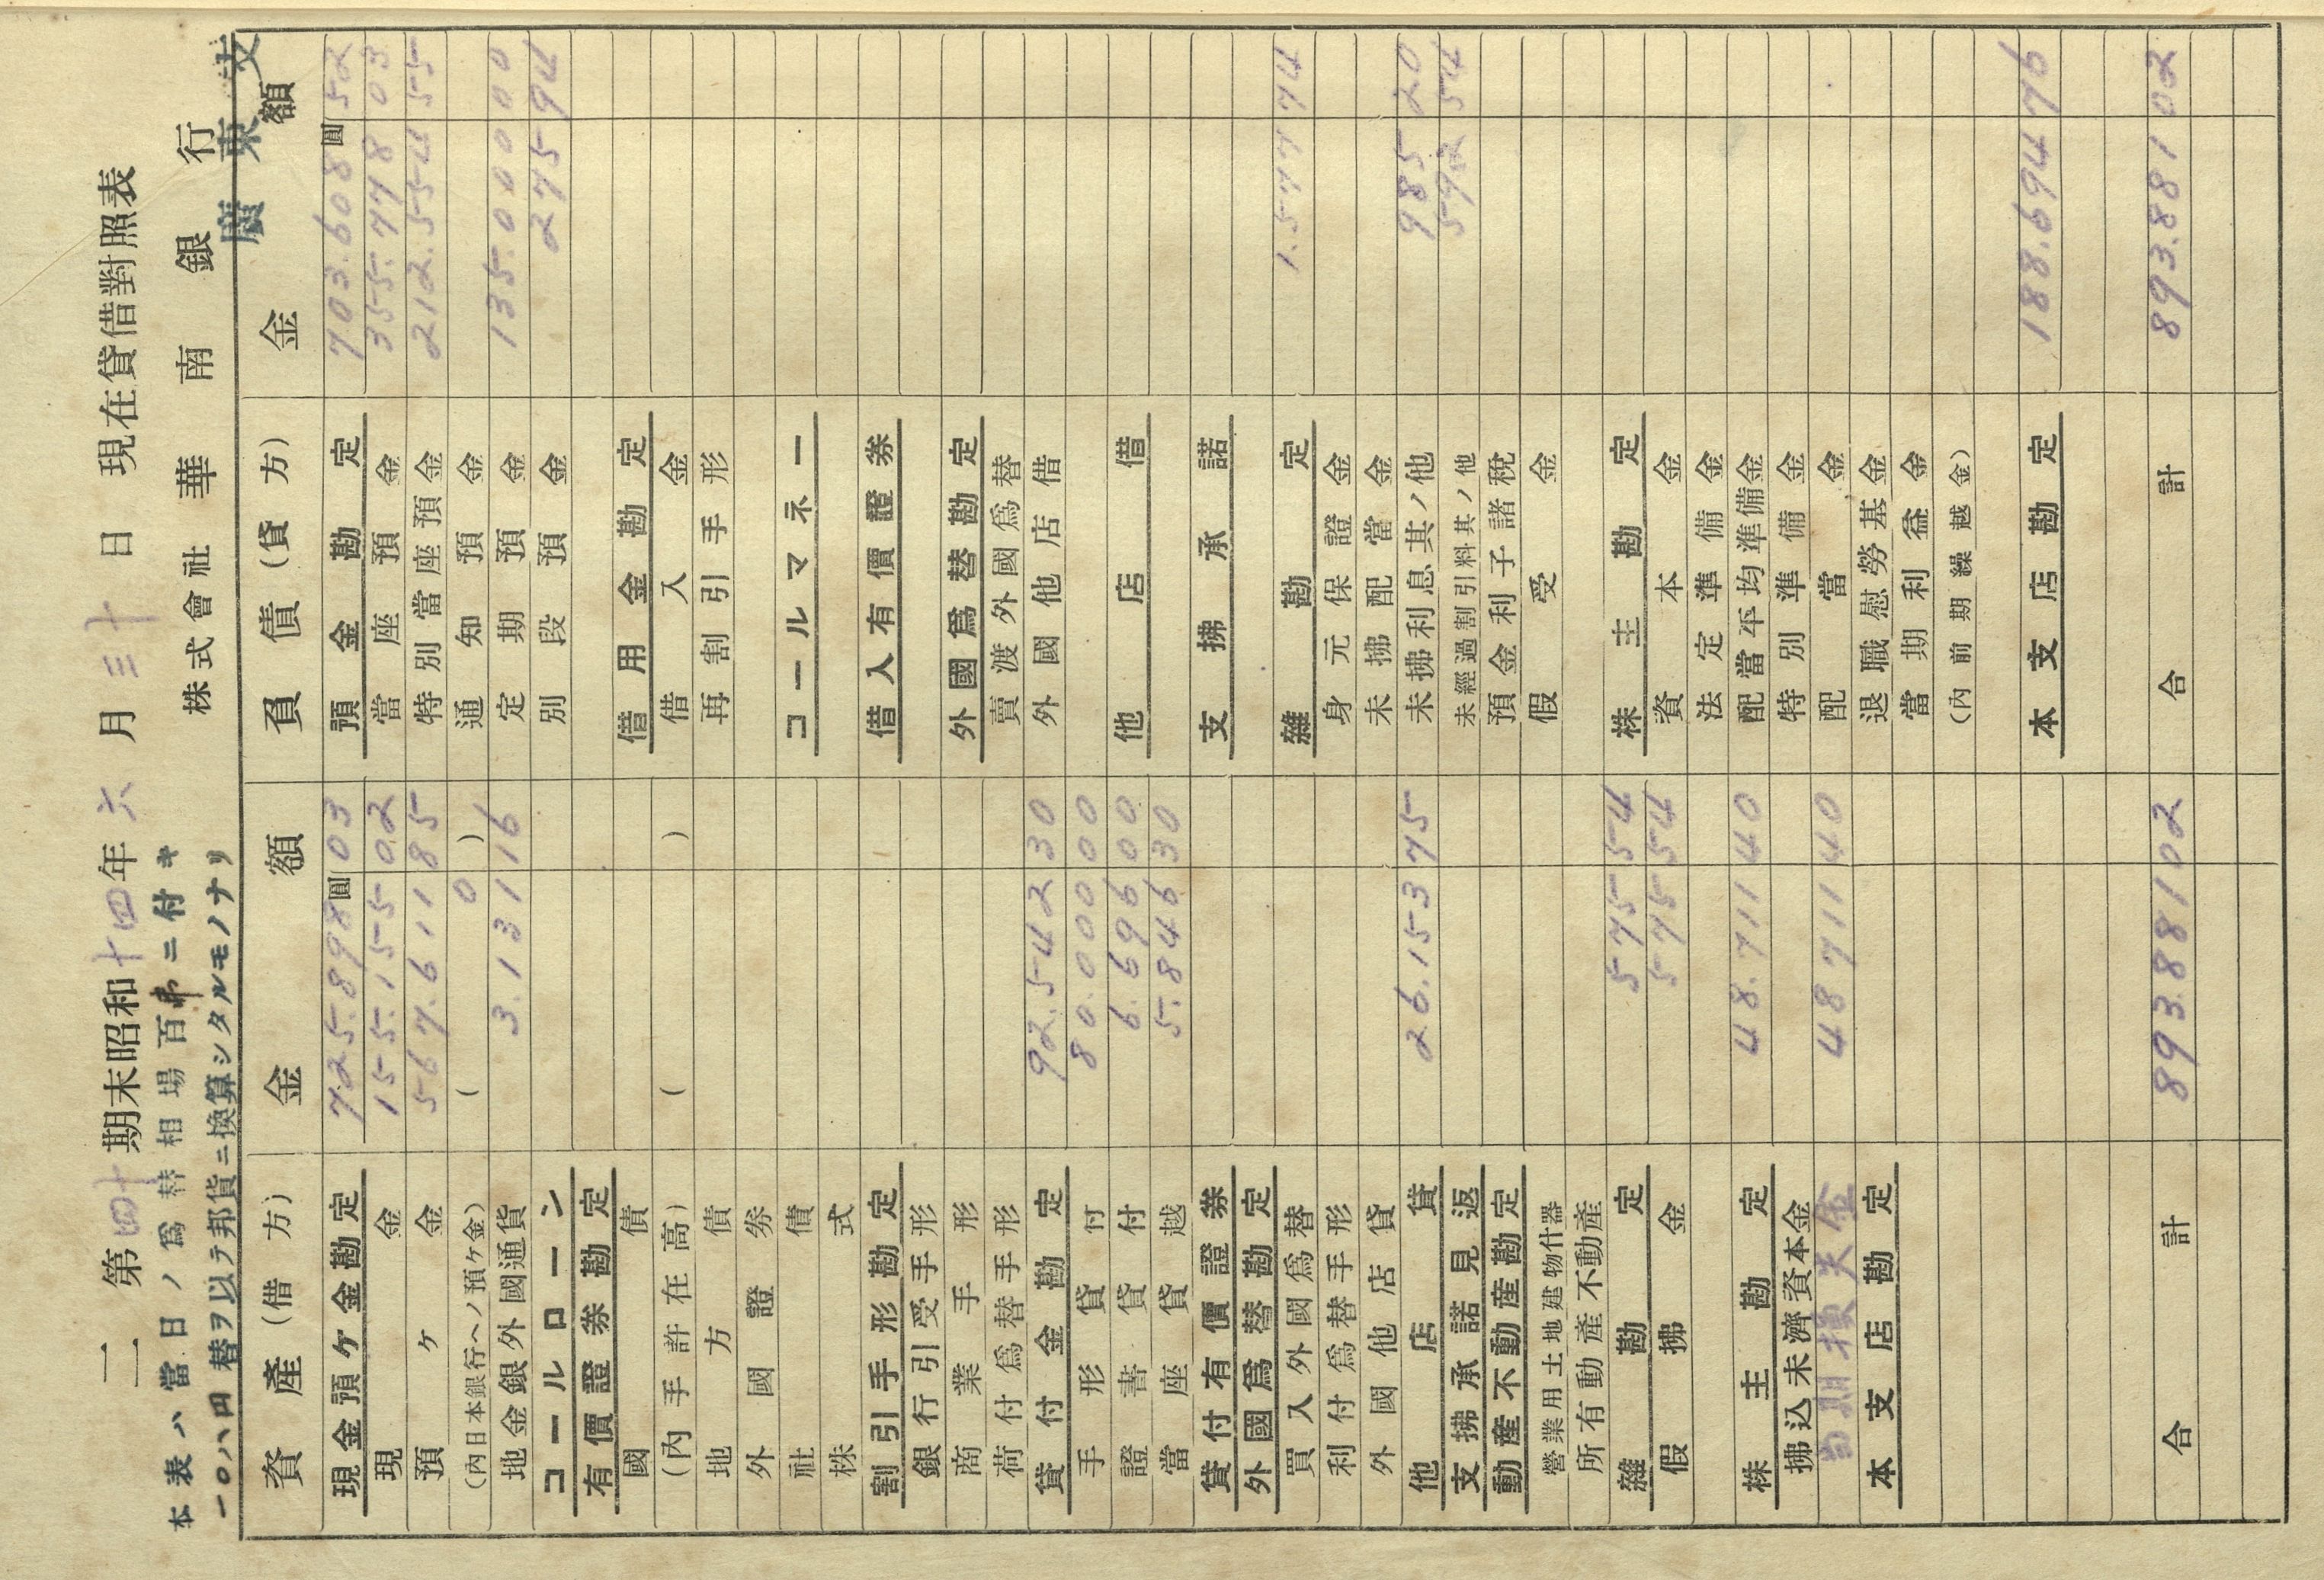 二 第四十期末昭和十四年六月三十日 現在貸借對照表
本表ハ當日ノ爲替相場百弗ニ付キ 株式會社 華南銀行
一〇八円替ヲ以テ邦貨ニ換算シタルモノナリ 廣東支
資產(借方) 金額 負債(貸方) 金額
現金預ケ金勘定 725.898圓03 預金勘定 703.608圓52
現金 155.155 02 當座預金 355.778 03
預ケ金 567.611 85 特別當座預金 212.554 55
(內日本銀行ヘノ預ケ金) ( 0 ) 通知預金
地金銀外國通貨 3.131 16 定期預金 135.000 00
コールローン 別段預金 275 94
有價證券勘定
國債 借用金勘定
(內手許在高) ( ) 借入金
地方債 再割引手形
外國證券
社債 コールマネー
株式
割引手形勘定 借入有價證券
銀行引受手形
商業手形 外國爲替勘定
荷付爲替手形 賣渡外國爲替
貸付金勘定 92.542 30 外國他店借
手形貸付 80.000 00
證書貸付 6.696 00 他店借
當座貸越 5.846 30
貸付有價證券 支拂承諾
外國爲替勘定
買入外國爲替 雜勘定 1.577 74
利付爲替手形 身元保證金
外國他店貸 未拂配當金
他店貸 26.153 75 未拂利息其ノ他 985 20
支拂承諾見返 未經過割引料其ノ他 592 54
動產不動產勘定 預金利子諸稅
營業用土地建物什器 假受金
所有動產不動產
雜勘定 575 54 株主勘定
假拂金 575 54 資本金
法定準備金
株主勘定 48.711 40 配當平均準備金
拂込未濟資本金 特別準備金
當期損失金 48 711 40 配當金
本支店勘定 退職慰勞基金
當期利益金
(內前期繰越金)
本支店勘定 188.694 76
合計 893.881 02 合計 893.881 02